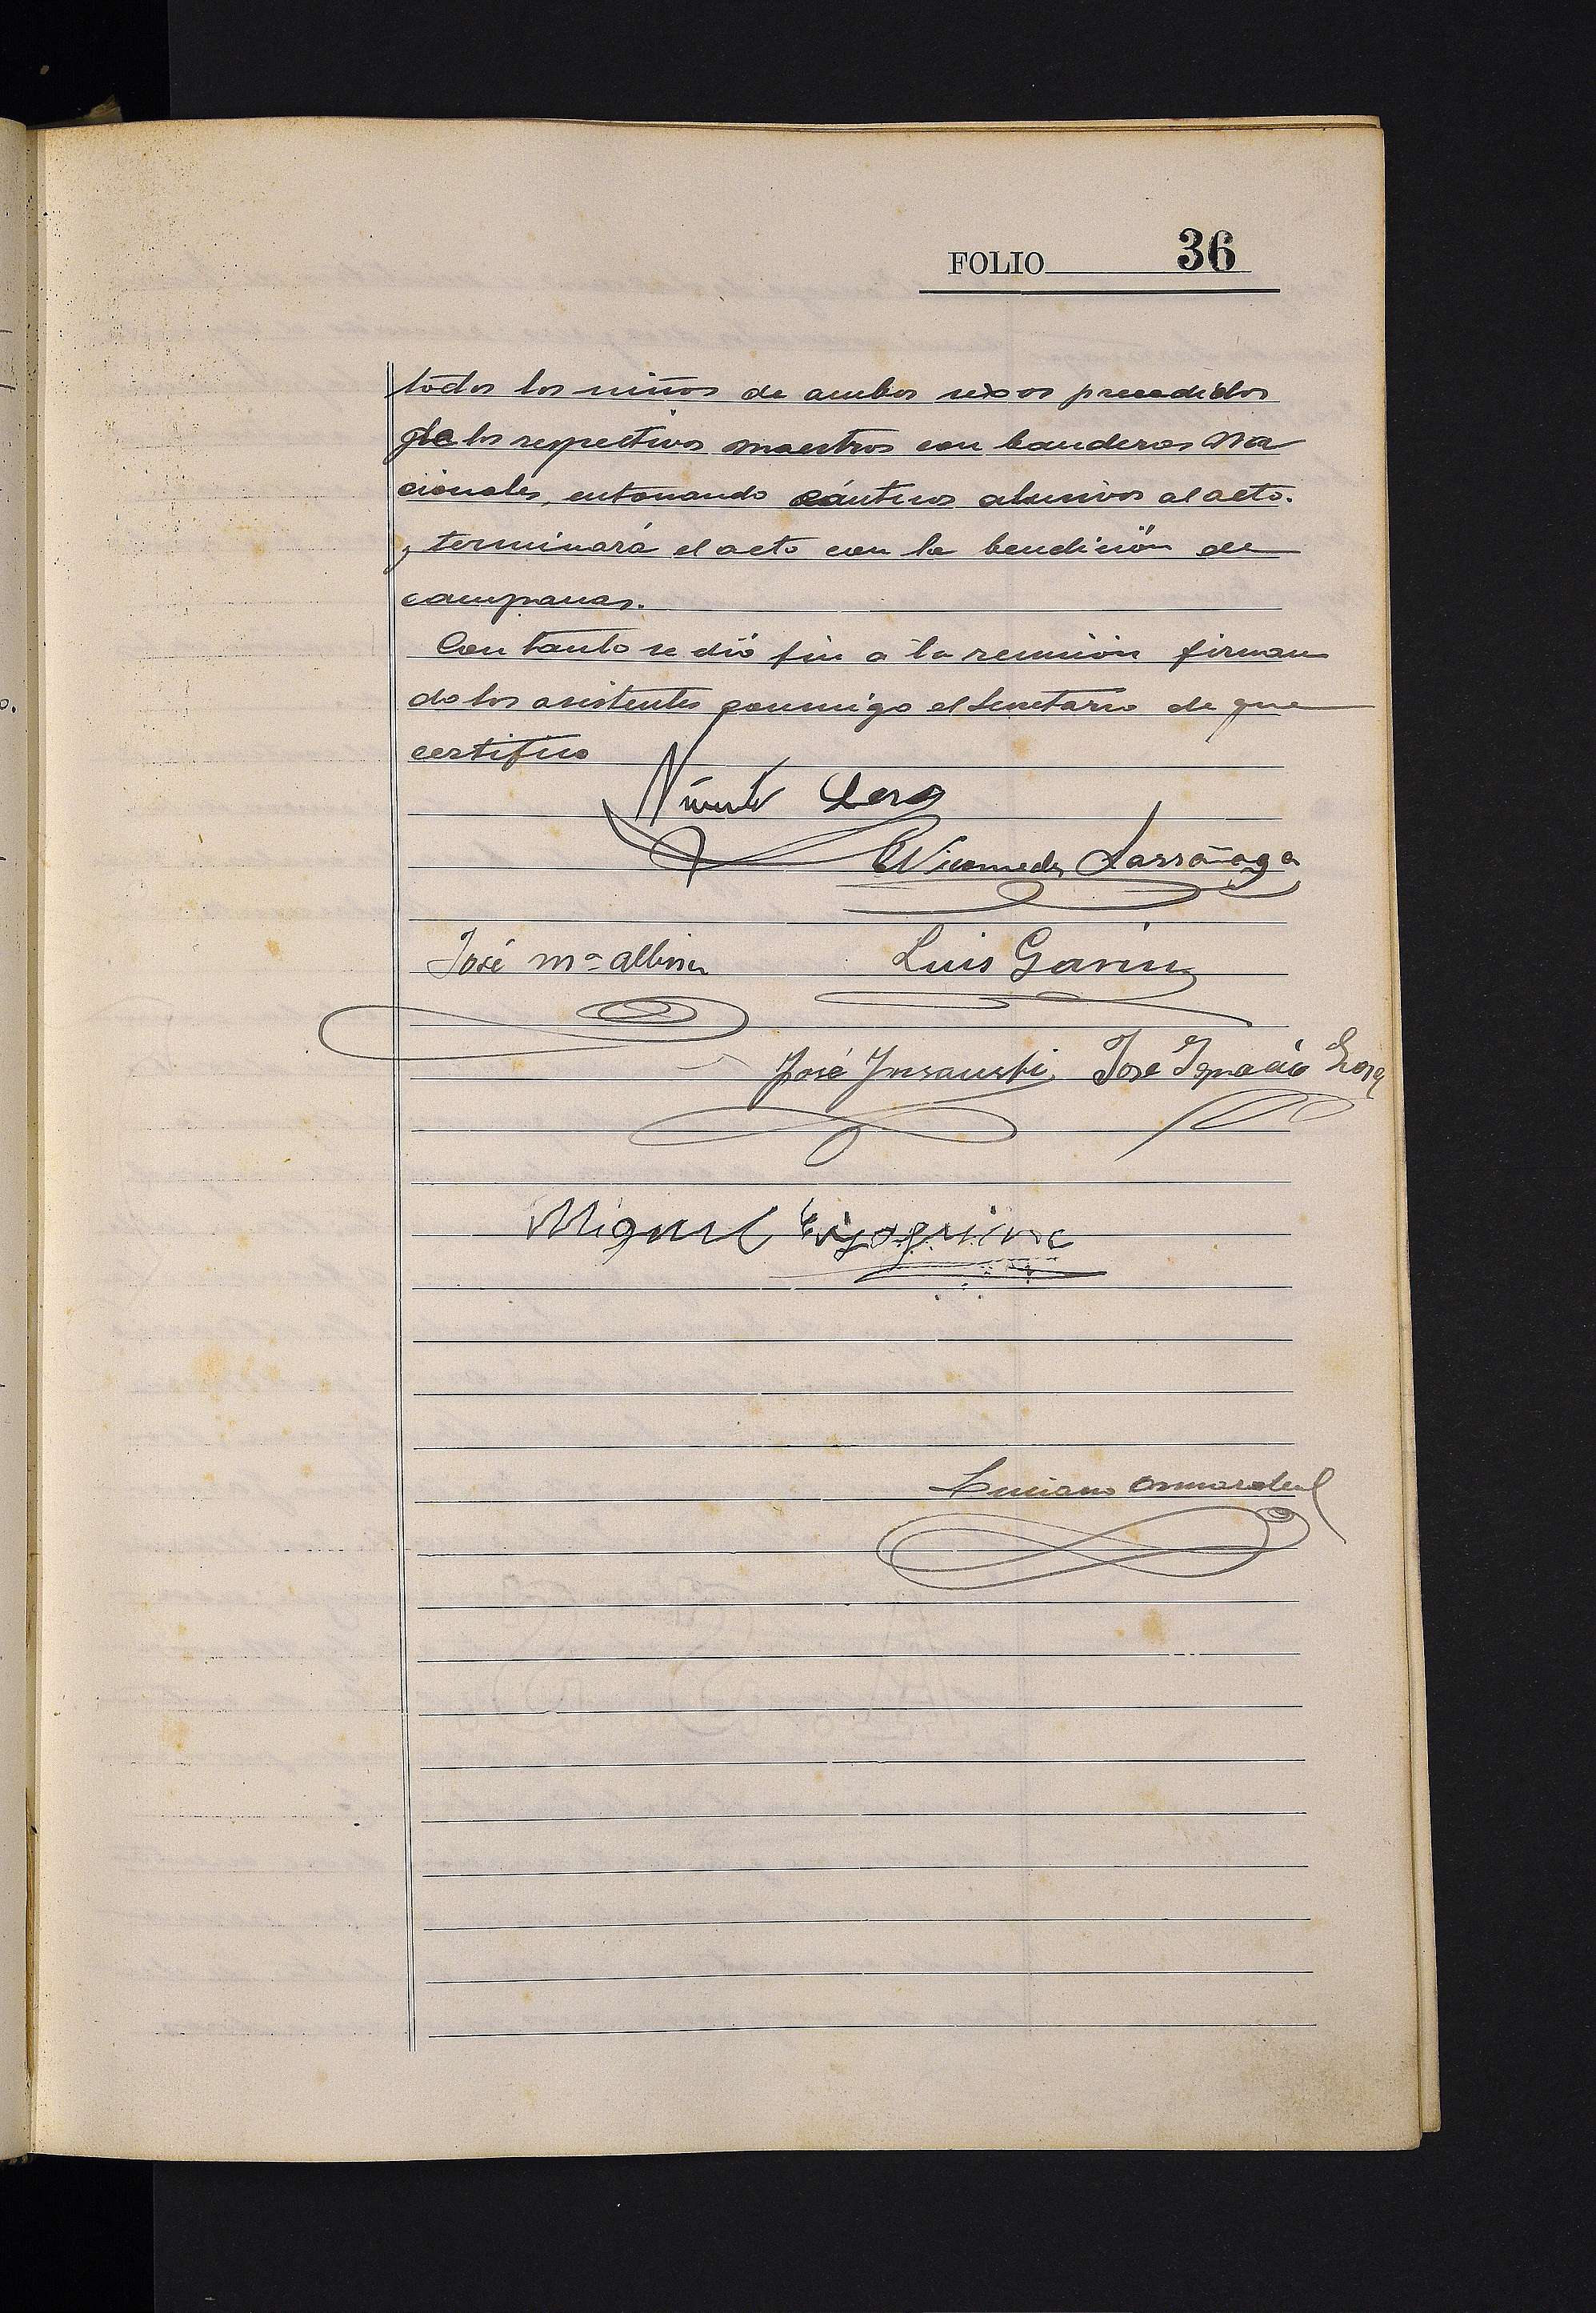 FOLIO 36
todos los niños de ambos sexos precedidos
de los respectivos maestros con banderas Na
cionales, entonando cánticos alusivos al acto.
y terminará el acto con la bendición de
campanas.
Con tanto se dió fin a la reunión firman
do los asistentes conmigo el Secretario de que
certifico
Nicomedes Larrañaga
José Mª Albisu Luis Garin
José Insausti José Ignacio
Miguel
Luciano